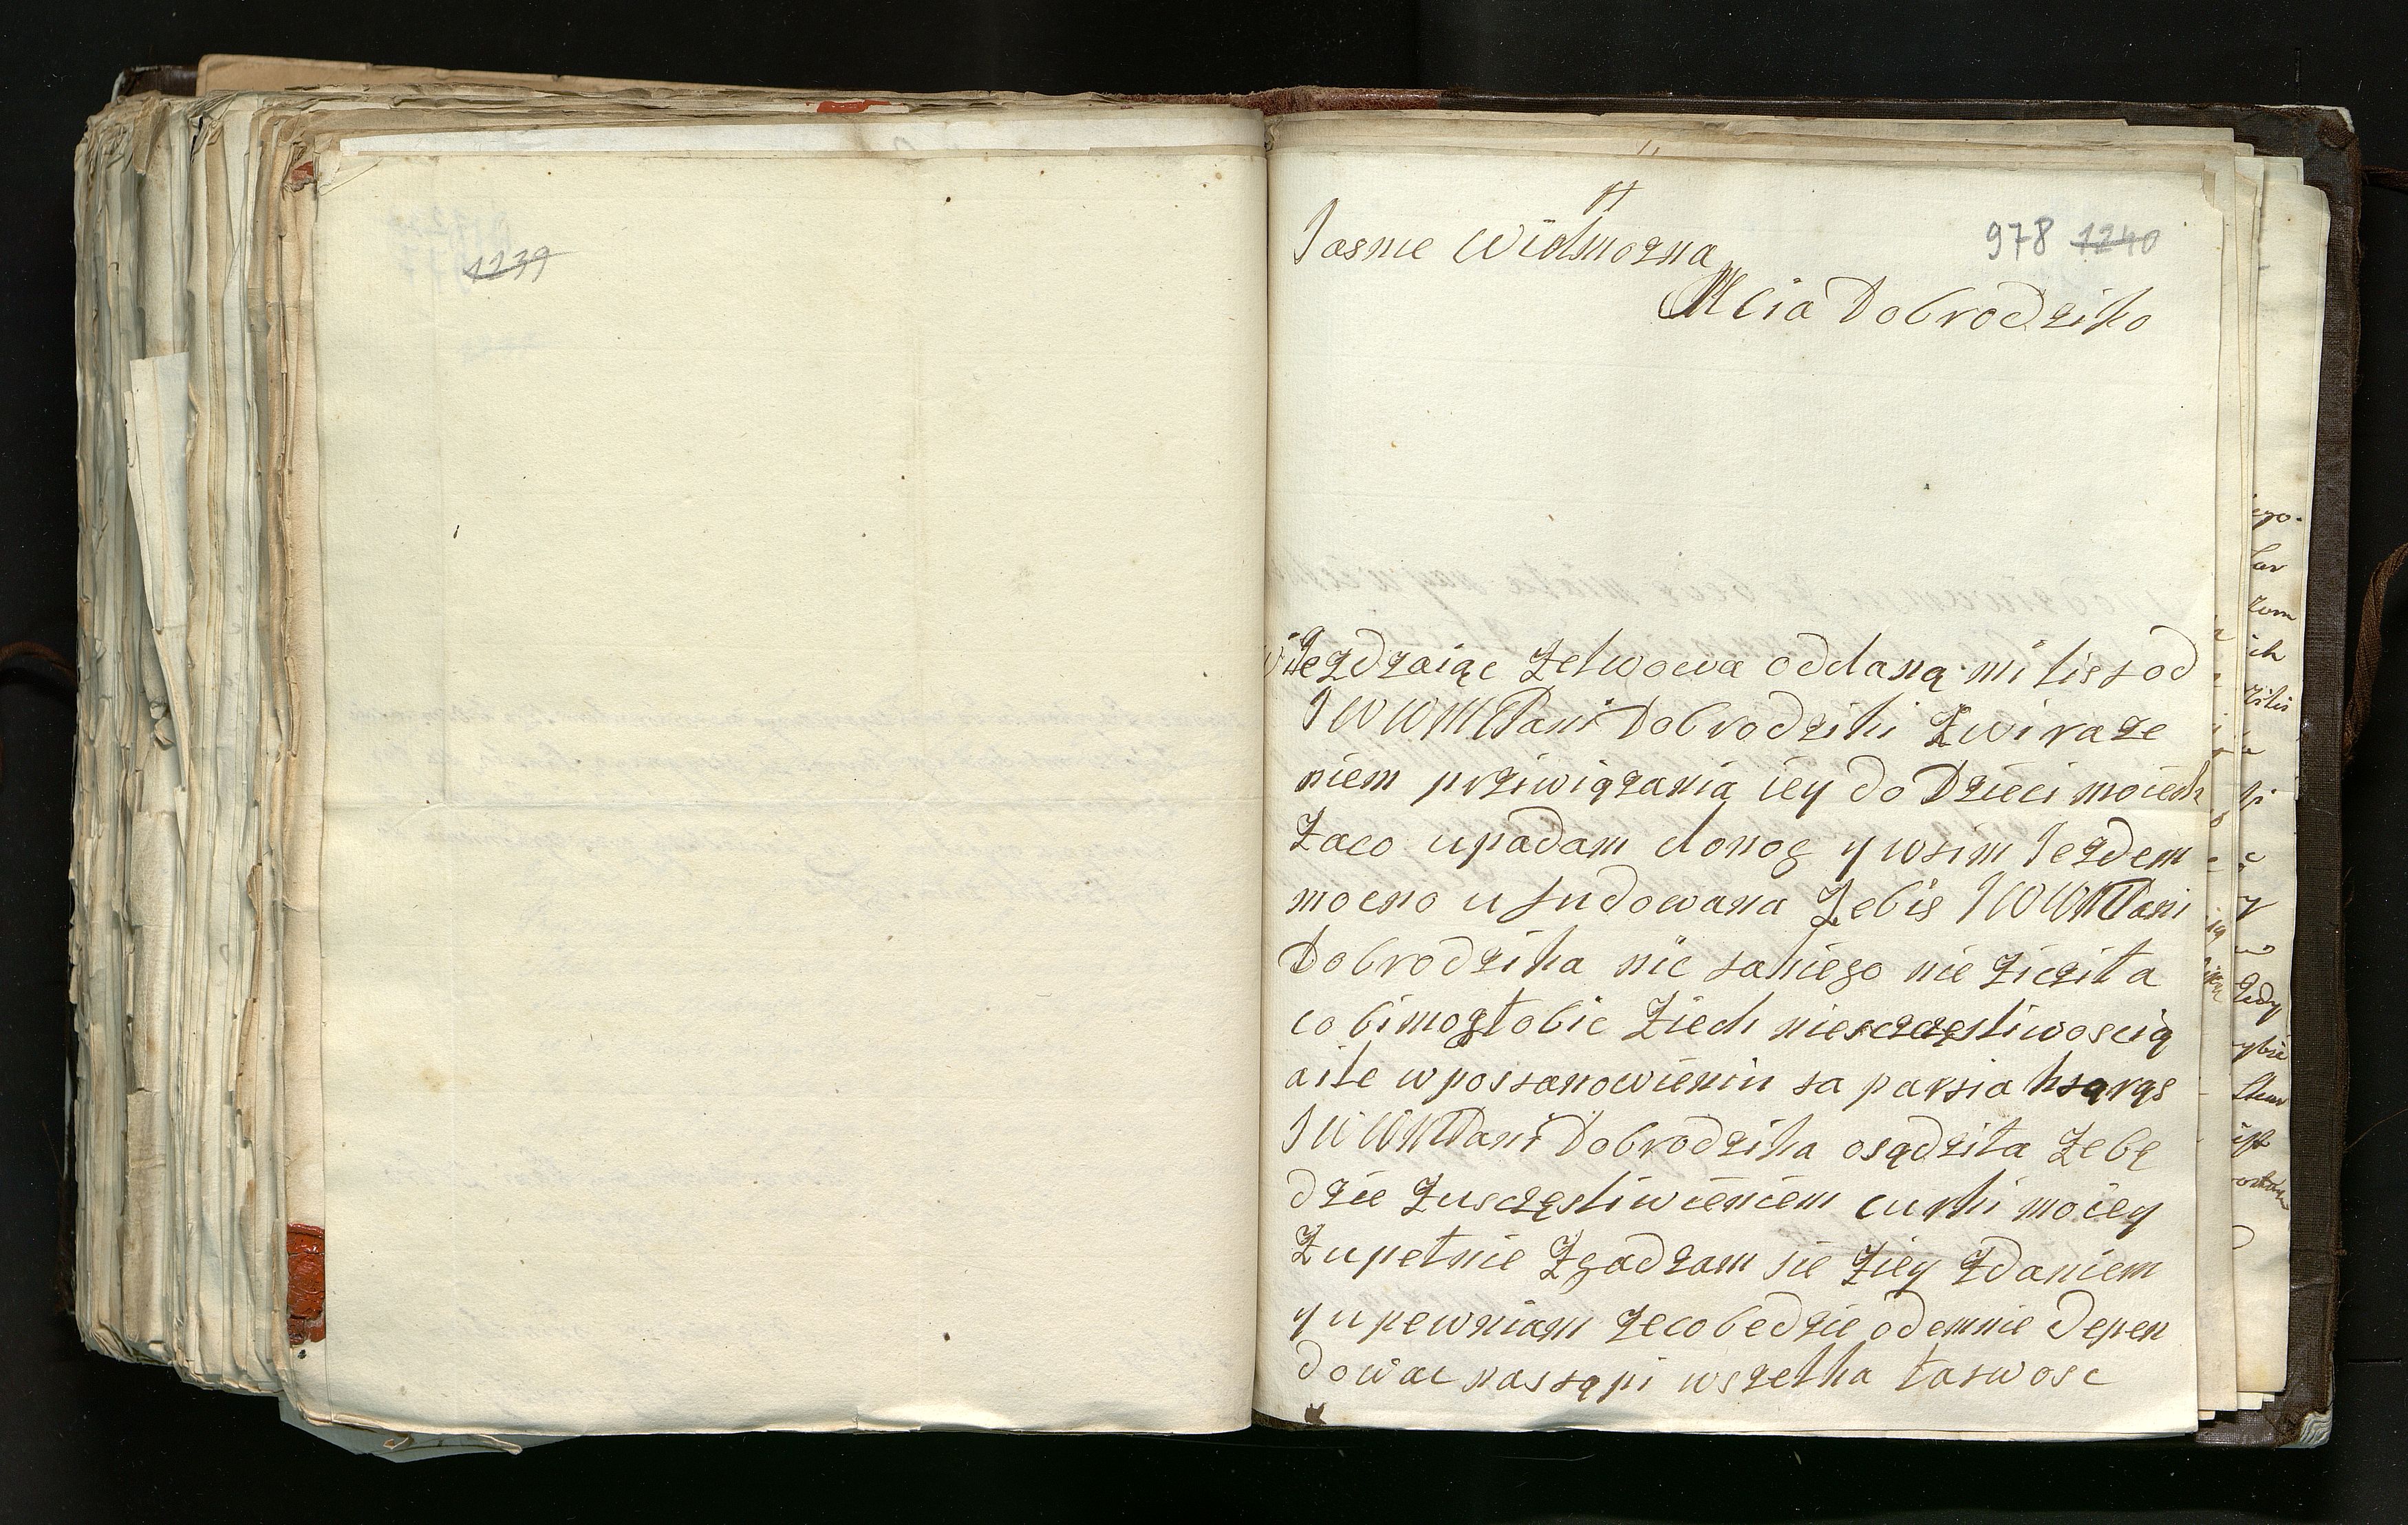 1239
978 1240
Jasnie Wielmozna
Mcia Dobrodziko
wiiezdzaiąc zelwowa oddaną mi list od
JWWMPani Dobrodziki zwiraze
niem prziwiązania iey do Dzieci moiech
zaco upadam donog y wtim Jezdem
mocno utudowana zebis JWWMPani
Dobrodzika nic takiego nie zicziła
cobimogłobic ziech niesczęsliwoscią
aile wpostanowieniu ta partia ktąrąs
JWWMPani Dobrodzika osądziła zebę
dzie zusczęsliwieniem curki moiey
zupełnie zgadzam sie ziey zdaniem
y upewniam zecobedzie odemnie depen
dowac nastąpi wszelka łatwosc